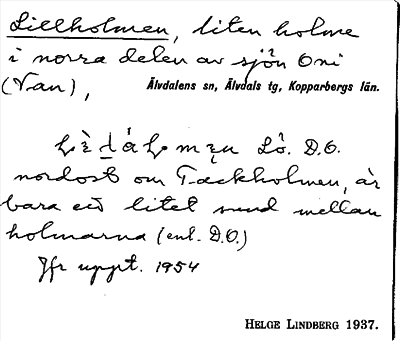 Lillholmen, liten holme
i norra delen av sjön Oni
(Van),
Älvdalens sn, Älvdals tg, Kopparbergs län.
Lö. D.O.
nordost om Täckholmen, är
bara ett litet sund mellan
holmarna (enl. D.O.)
Jfr uppt. 1954
HELGE LINDBERG 1937.